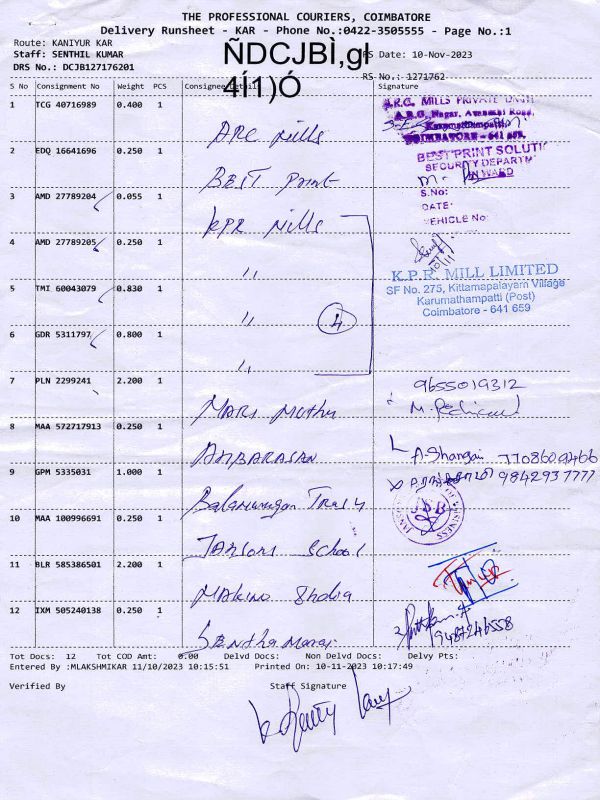 THE PROFESSIONAL COURIERS, COIMBATORE
Delivery Runsheet - KAR - Phone No.:0422-3505555 - Page No.:1
Route: KANIYUR KAR
Staff: SENTHIL KUMAR
ÑDCJBÌ,gl
RS Date: 10-Nov-2023
DRS No.: DCJB127176201
4Í1)Ó
RS No.: 1271762
S No Consignment No Weight PCS Consignee Detail Signature
1 TCG 40716989 0.400 1 ARC Mills
A.R.C. MILLS PRIVATE LIMIT
A.R.C. Nagar, Avanashi Road,
Karumathampatti,
COIMBATORE - 641 659.
2 EDQ 16641696 0.250 1 BEST Print
BEST PRINT SOLUTI
SECURITY DEPARTM
INWARD
3 AMD 27789204 0.055 1 KPR Mills
S.No:
DATE:
VEHICLE No:
4 AMD 27789205 0.250 1 ,,
10/11
K.P.R. MILL LIMITED
SF No. 275, Kittamapalayam Village
Karumathampatti (Post)
Coimbatore - 641 659
5 TMI 60043079 0.830 1 ,,
4
6 GDR 5311797 0.800 1 ,,
7 PLN 2299241 2.200 1 MARI Muthu
9655019312
8 MAA 572717913 0.250 1 ANBARASAN
A. Shangai 7708609466
9 GPM 5335031 1.000 1 Balamurugan
9842937777
10 MAA 100996691 0.250 1 JANSONS School
JSB
11 BLR 585386501 2.200 1 MAKino
12 IXM 505240138 0.250 1
9487246558
Tot Docs: 12 Tot COD Amt: 0.00 Delvd Docs: Non Delvd Docs: Delvy Pts:
Entered By :MLAKSHMIKAR 11/10/2023 10:15:51 Printed On: 10-11-2023 10:17:49
Verified By Staff Signature